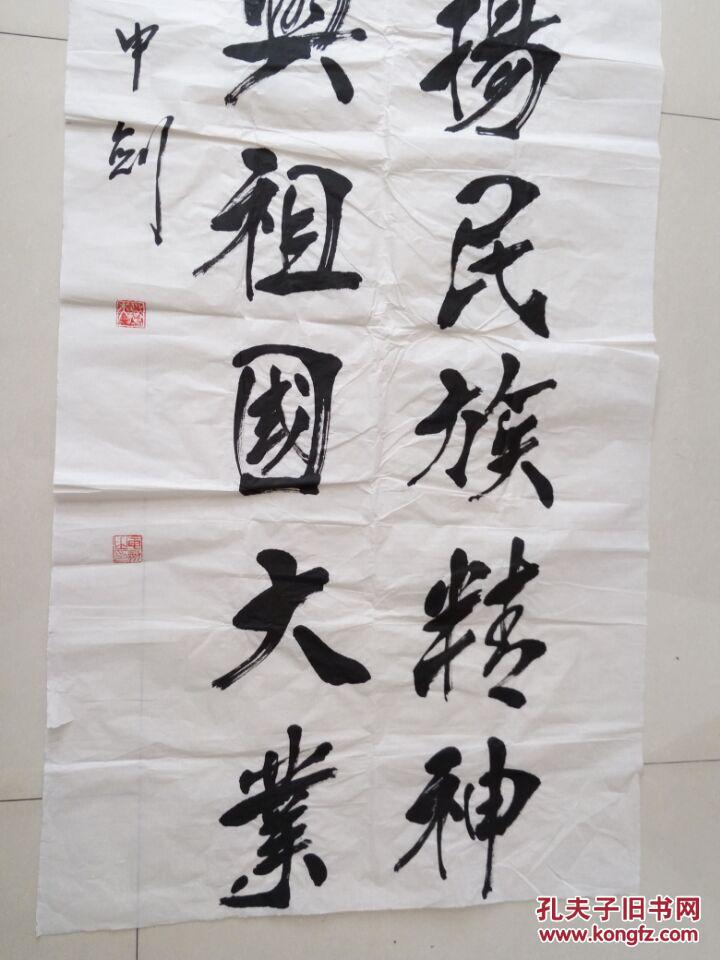 揚民族精神
興祖國大業
申剑
孔夫子旧书网
www.kongfz.com